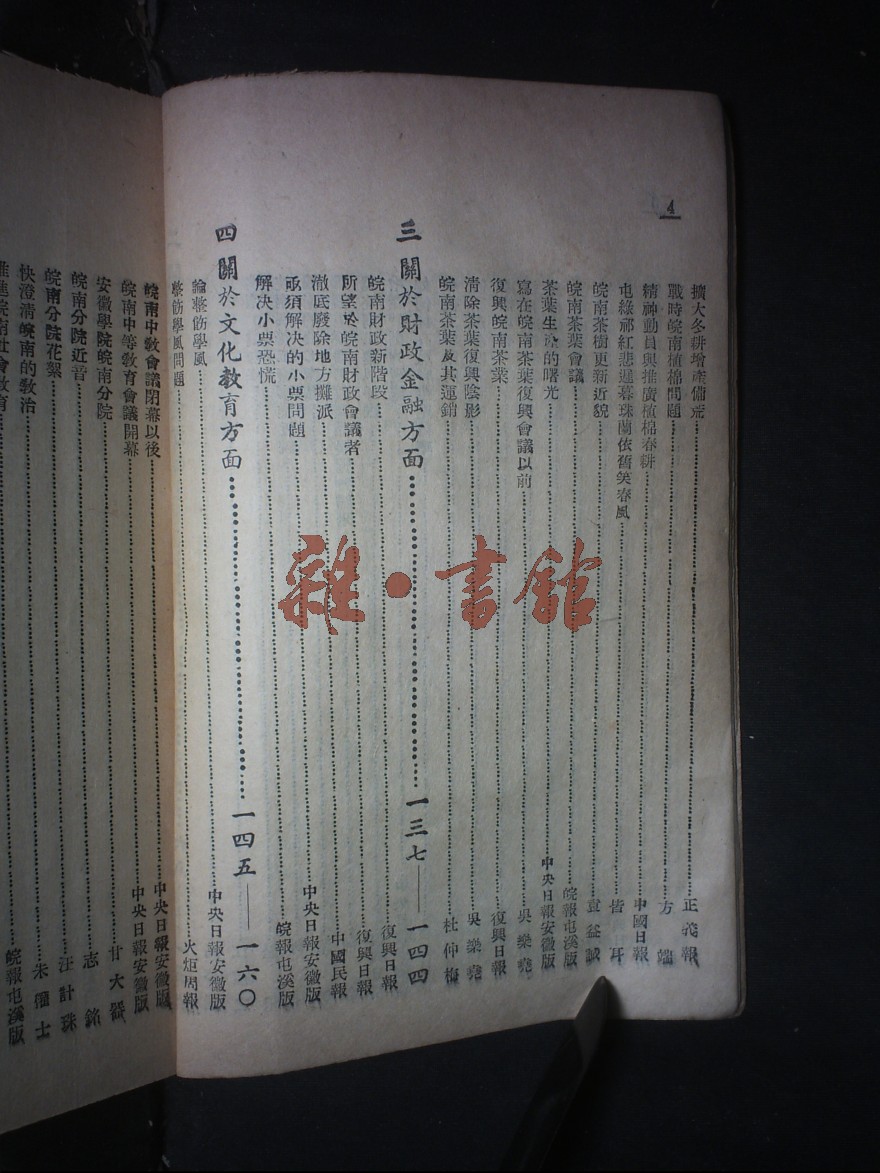 4
擴大冬耕增產備荒 正義報
戰時皖南植棉問題 方端
精神動員與推廣植棉春耕 中國日報
屯綠祁紅悲遲暮珠蘭依舊笑春風 皆耳
皖南茶樹更新近貌
皖南茶葉會議 皖報屯溪版
茶葉生產的曙光 中央日報安徽版
寫在皖南茶葉復興會議以前 吳樂堯
復興皖南茶業 復興日報
清除茶葉復興陰影 吳樂堯
皖南茶葉及其運銷 杜仲梅
三 關於財政金融方面 一三七——一四四
皖南財政新階段 復興日報
所望於皖南財政會議者 復興日報
澈底廢除地方攤派 中國民報
亟須解決的小票問題 中央日報安徽版
解決小票恐慌 皖報屯溪版
四 關於文化教育方面 一四五——一六〇
論整飭學風 中央日報安徽版
整飭學風問題 火炬周報
皖南中教會議閉幕以後 中央日報安徽版
皖南中等教育會議開幕 中央日報安徽版
安徽學院皖南分院 甘大器
皖南分院近音 志銘
皖南分院花絮 汪計珠
快澄清皖南的教治 朱佩士
推進皖南社會教育 皖報屯溪版
雜·書館